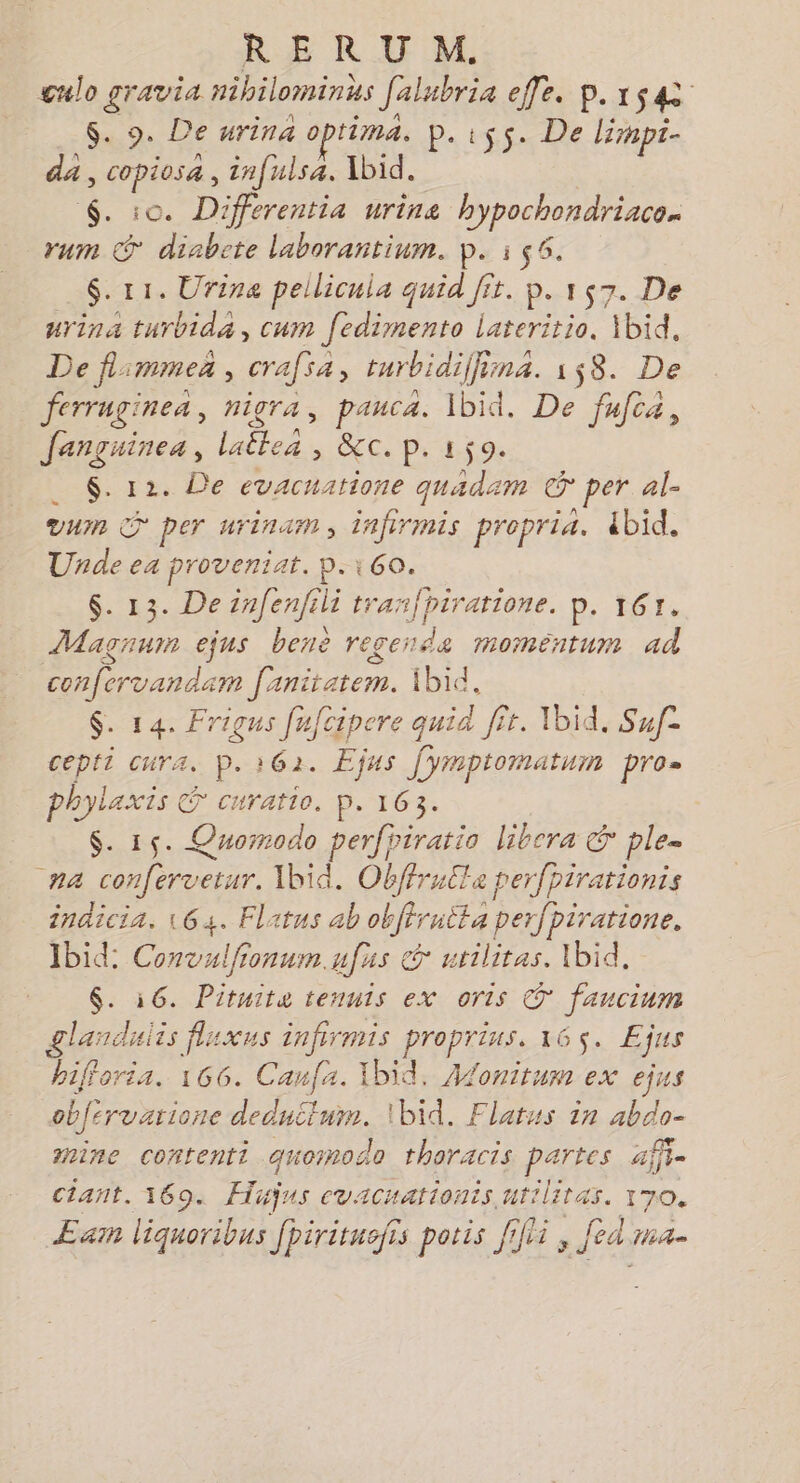 RERUM.
culo gravia nihilominùs ſalubria eſſe. p. 154.
§. 9. De urinâ optimâ. p. 155. De limpi-
dâ, copioſâ, inſulsâ. Ibid.
§. 10. Differentia urinæ hypochondriaco-
rum & diabete laborantium. p. 156.
§. 11. Urinæ pellicula quid ſit. p. 157. De
urinâ turbidâ, cum ſedimento lateritio. Ibid.
De flammeâ, craſsâ, turbidiſſimâ. 158. De
ferrugineâ, nigrâ, paucâ. Ibid. De fuſcâ,
ſanguinea, lacteâ, &c. p. 159.
§. 12. De evacuatione quâdam & per al-
vum & per urinam, infirmis propriâ. ibid.
Unde ea proveniat. p. 160.
§. 13. De inſenſili tranſpiratione. p. 161.
Magnum ejus benè regendæ momentum ad
conſervandam ſanitatem. ibid.
§. 14. Frigus ſuſcipere quid ſit. Ibid. Suſ-
cepti cura. p. 162. Ejus ſymptomatum pro-
phylaxis & curatio. p. 163.
§. 15. Quomodo perſpiratio libera & ple-
na conſervetur. Ibid. Obſtructæ perſpirationis
indicia. 164. Flatus ab obſtructa perſpiratione.
Ibid: Convulſionum uſus & utilitas. Ibid.
§. 16. Pituitæ tenuis ex oris & faucium
glandulis fluxus infirmis proprius. 165. Ejus
hiſtoria. 166. Cauſa. Ibid. Monitum ex ejus
obſervatione deductum. Ibid. Flatus in abdo-
mine contenti quomodo thoracis partes affi-
ciant. 169. Hujus evacuationis utilitas. 170.
Eam liquoribus ſpirituoſis potis ſiſti, ſed ma-